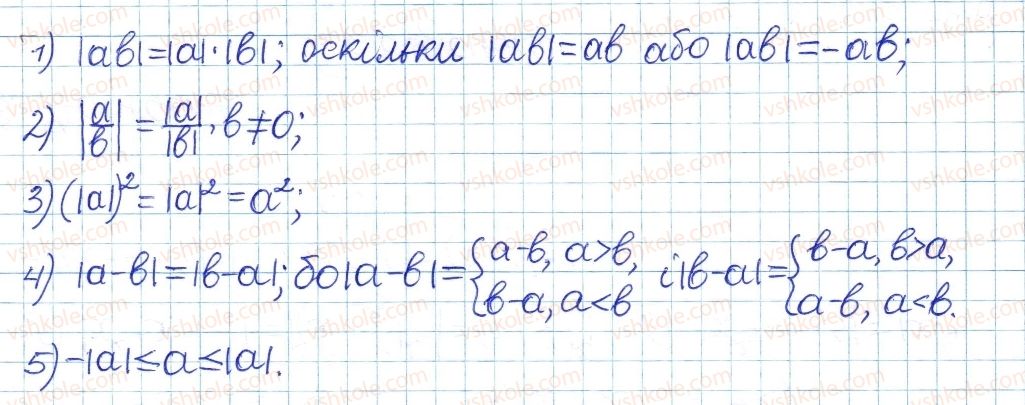 1) |ab| = |a|·|b|; оскільки |ab| = ab або |ab| = -ab;
2) |a/b| = |a|/|b|, b ≠ 0;
3) (|a|)² = |a|² = a²;
4) |a-b| = |b-a|; бо |a-b| = { a-b, a>b, b-a, a<b і |b-a| = { b-a, b>a, a-b, a<b.
5) -|a| ≤ a ≤ |a|.
vshkole.com